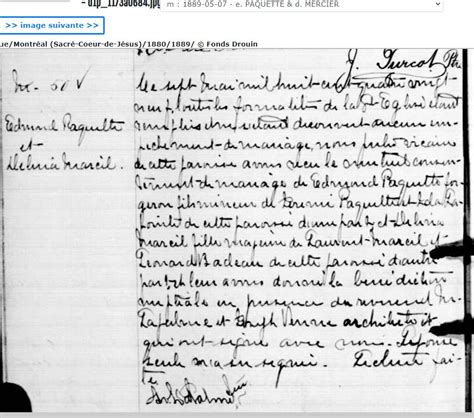 m : 1889-05-07 - e. PAQUETTE & d. MERCIER
>> image suivante >>
ue/Montréal (Sacré-Coeur-de-Jésus)/1880/1889/ © Fonds Drouin
J. Turcot Ptr
Edmond Paquette
et
Delvina Marcil.
Le sept Mai mil huit cent quatre vingt
neuf toutes les formalités de la Ste Eglise étant
remplies et n'étant découvert aucun em-
pêchement de mariage, nous prêtre vicaire
de cette paroisse avons reçu le mutuel consen-
tement de mariage de Edmond Paquette for-
geron fils mineur de Paquette et de La
Pointe de cette paroisse d'une part, et Delvina
Marcil fille majeure de Laurent Marcil et
Léonard Badeau de cette paroisse d'autre
part et leur avons donné la bénédiction
nuptiale en présence du révérend M.
Lafebvre et Joseph Venne architecte et
qui ont signé avec nous. L'épouse
seule n'a su signer. Lecture fai-
te